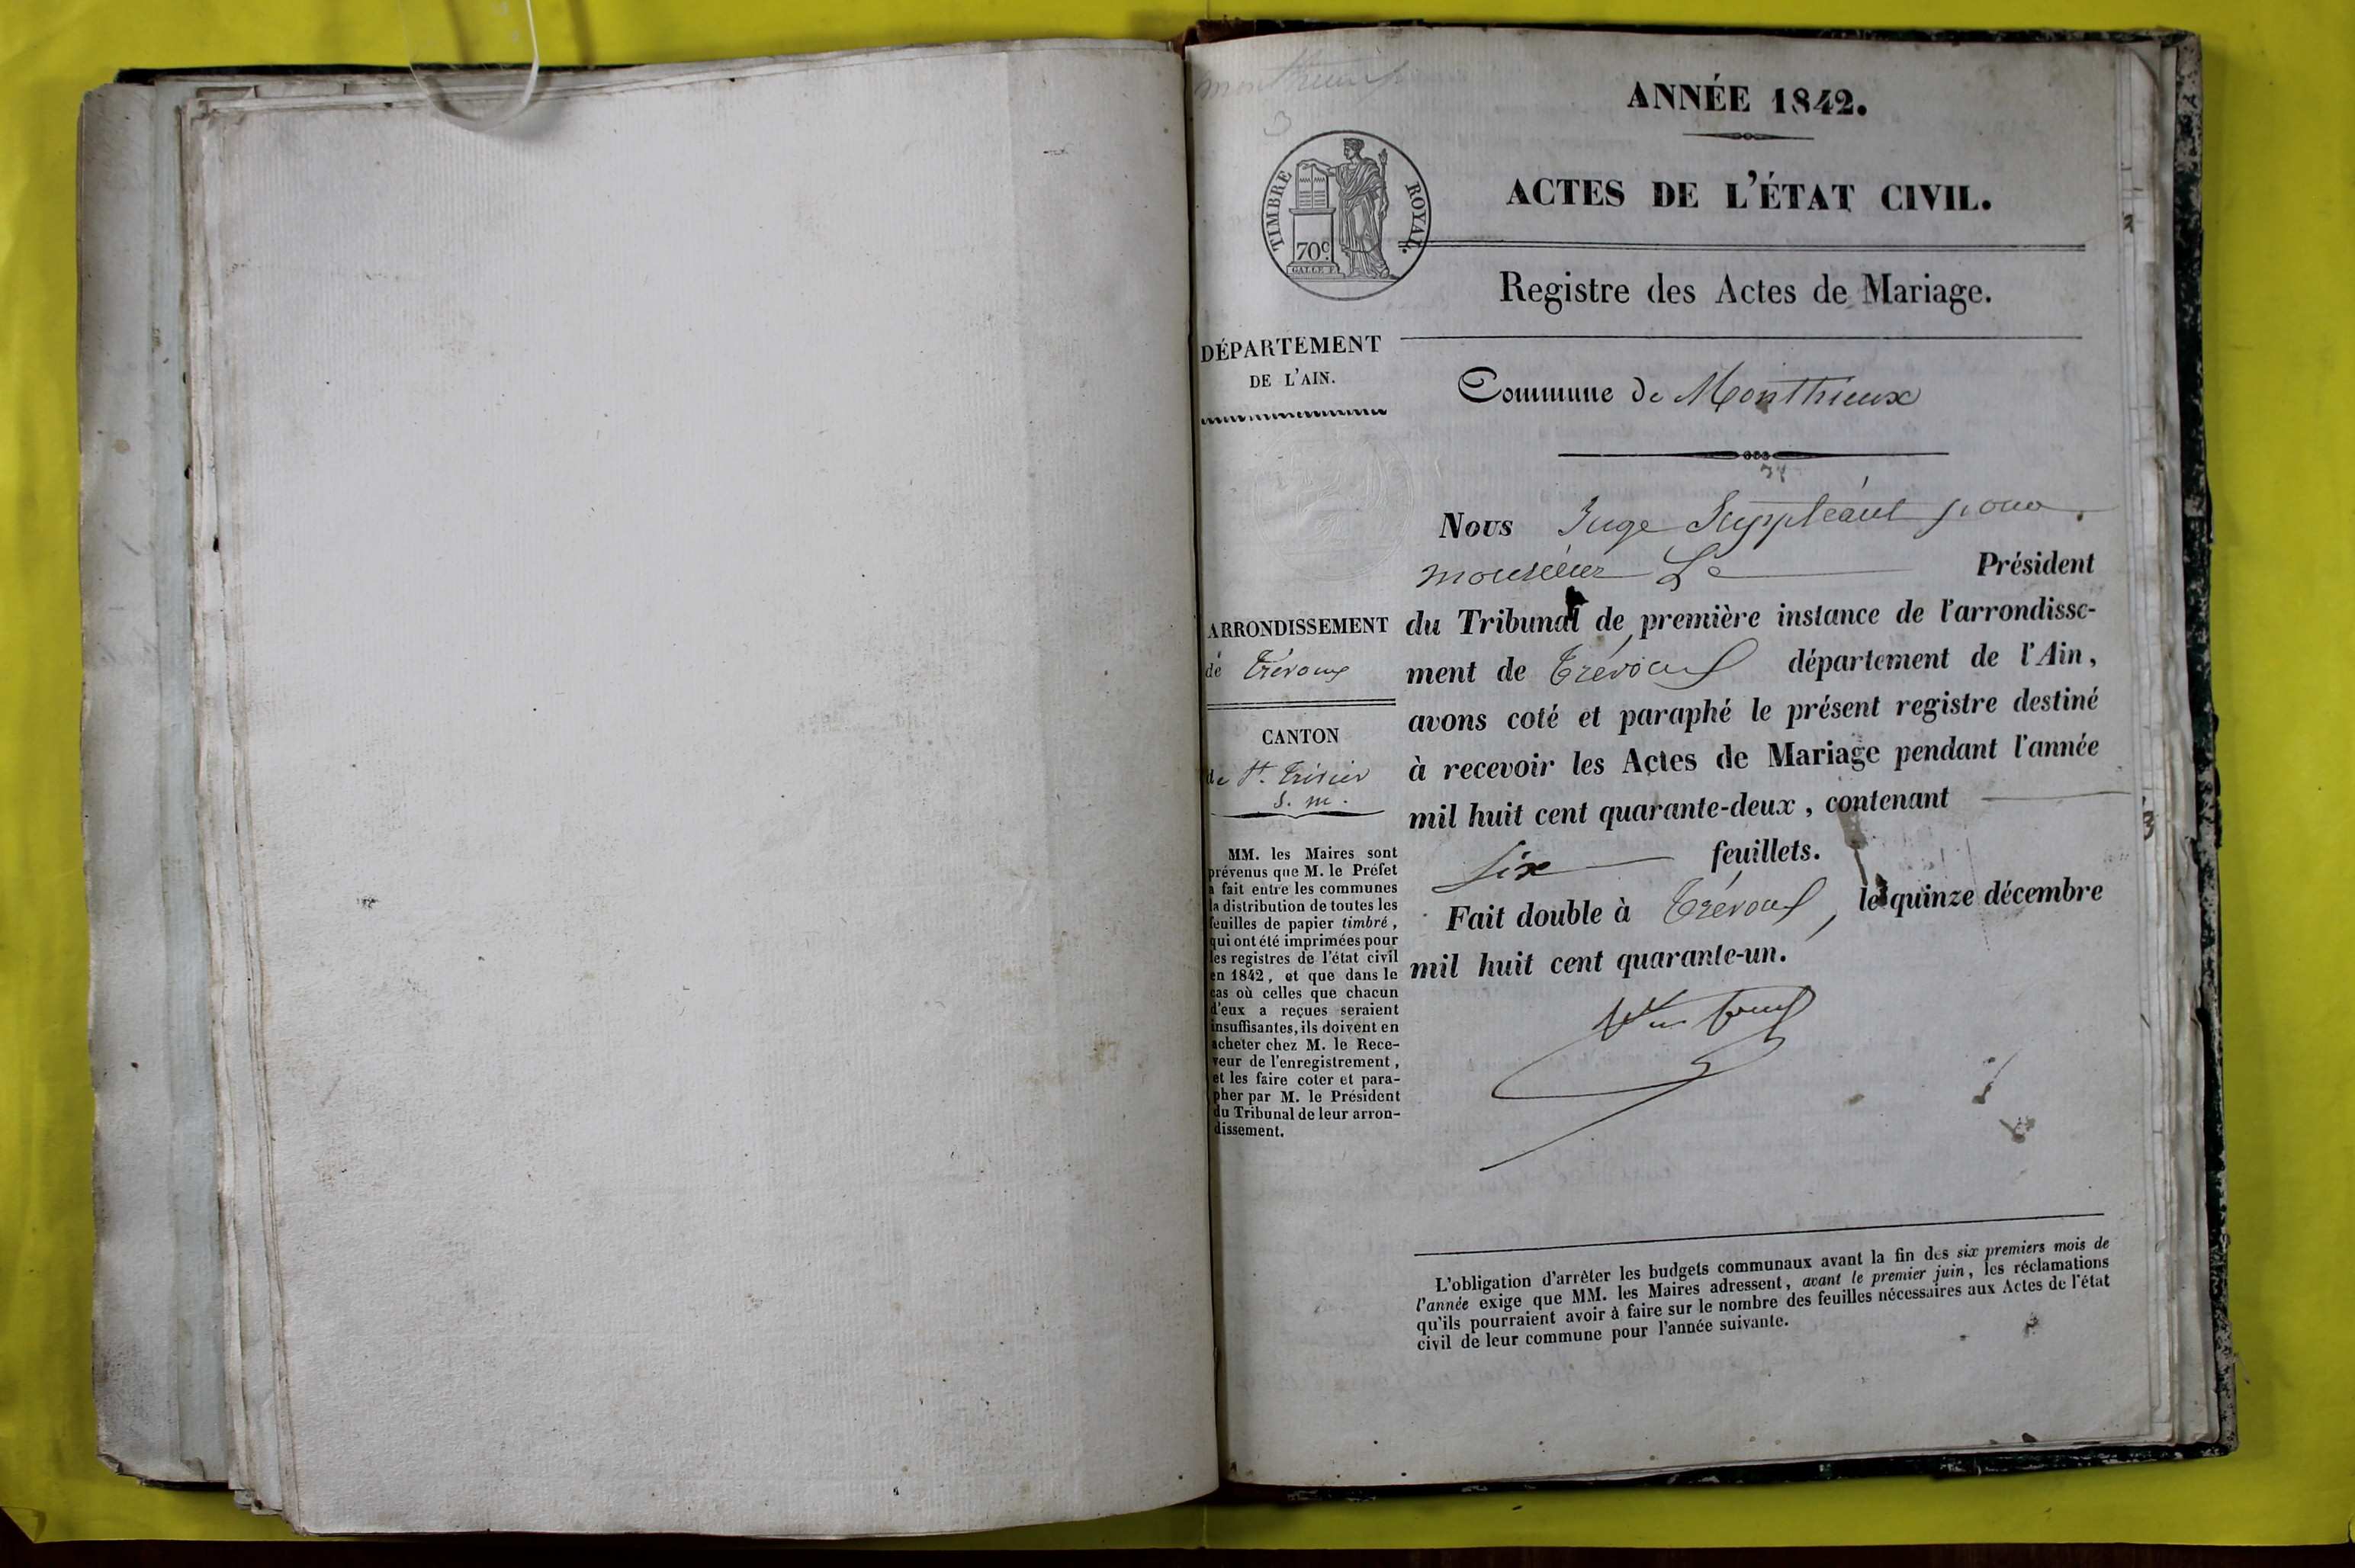 monthieux
3
ANNÉE 1842.
ACTES DE L'ÉTAT CIVIL.
TIMBRE ROYAL.
70c.
GALLE F.
Registre des Actes de Mariage.
DÉPARTEMENT
DE L'AIN.
Commune de Monthieux
Nous Juge Suppléant pour
monsieur Le Président
du Tribunal de première instance de l'arrondisse-
ment de Trévoux département de l'Ain,
avons coté et paraphé le présent registre destiné
à recevoir les Actes de Mariage pendant l'année
mil huit cent quarante-deux, contenant
six feuillets.
Fait double à Trévoux, le quinze décembre
mil huit cent quarante-un.
ARRONDISSEMENT
de Trévoux
CANTON
de St. Trivier
s. m.
MM. les Maires sont
prévenus que M. le Préfet
a fait entre les communes
la distribution de toutes les
feuilles de papier timbré,
qui ont été imprimées pour
les registres de l'état civil
en 1842, et que dans le
cas où celles que chacun
d'eux a reçues seraient
insuffisantes, ils doivent en
acheter chez M. le Rece-
veur de l'enregistrement,
et les faire coter et para-
pher par M. le Président
du Tribunal de leur arron-
dissement.
L'obligation d'arrêter les budgets communaux avant la fin des six premiers mois de
l'année exige que MM. les Maires adressent, avant le premier juin, les réclamations
qu'ils pourraient avoir à faire sur le nombre des feuilles nécessaires aux Actes de l'état
civil de leur commune pour l'année suivante.